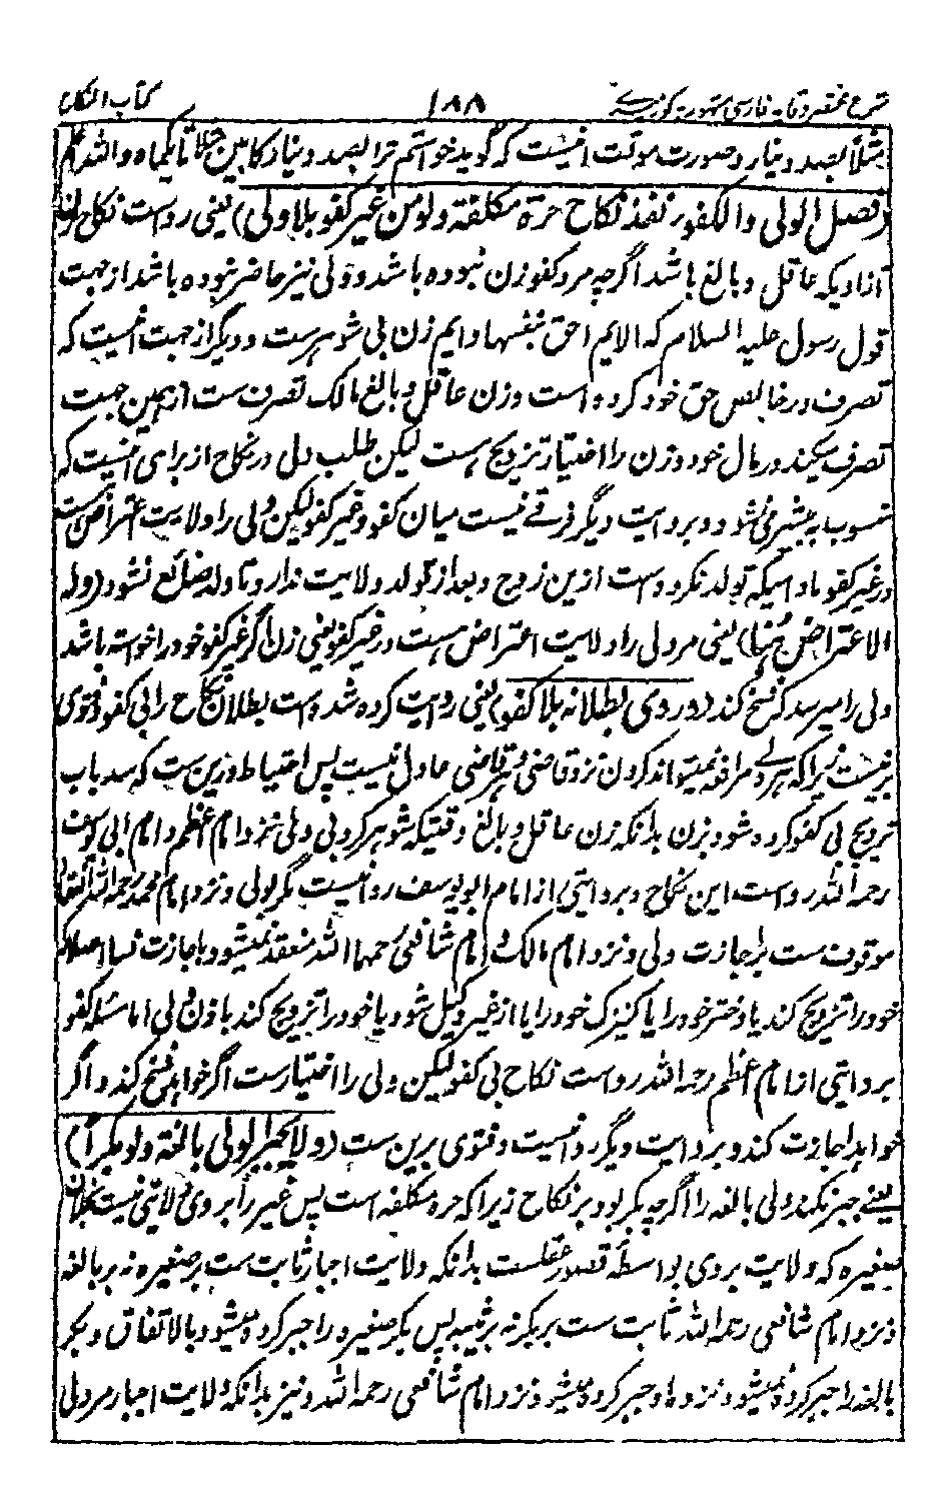 شرح مختصر وقایه فارسی مشهور به کور میری ۱۸۸ کتاب النکاح
مثلاً بصد دینار و صورت موقت انیست که گوید خواستم ترا بصد دینار کابین مثلاً تا یکماه والله اعلم
(فصل الولی والکفو نفذ نکاح حرة مکلفة ولو من غیر کفو بلا ولی) یعنی رواست نکاح زن
آزادیکه عاقل و بالغ باشد اگرچه مرد کفو زن نبوده باشد و ولی نیز حاضر نبوده باشد از جهت
قول رسول علیه السلام که الایم احق بنفسها و ایم زن بی شوهرست و دیگر از جهت انیست که
تصرف در خالص حق خود کرده است و زن عاقل و بالغ مالک تصرف ست ازیمین جهت
تصرف میکند در مال خود و زن را اختیار تزویج هست لیکن طلب ولی در نکاح از برای انیست که
منسوب به بیشرمی نشود و بروایت دیگر فرقے نیست میان کفو و غیر کفو لیکن ولی را ولایت اعتراض ست
در غیر کفو مادامیکه تولد نکرده است ازین زوج و بعد از تولد ولایت ندارد تا ولد ضائع نشود (وله
الاعتراض هنا) یعنی مر ولی را ولایت اعتراض هست در غیر کفو یعنی زن اگر غیر کفو خود را خواسته باشد
ولی را میرسد که فسخ کند (و روی بطلانه بلا کفو) یعنی روایت کرده شده است بطلان نکاح را بی کفو و فتوی
برنیست زیرا که هر ولے مرافعه نمیتواند کردن نزد قاضی و هر قاضی عادل نیست پس احتیاط درین ست که سد باب
تزویج بی کفو کرده شود بزن بدانکه زن عاقل و بالغ وقتیکه شوهر کرد بی ولی نزد امام اعظم و امام ابی یوسف
رحمه الله رواست این نکاح و بروایتی از امام ابو یوسف روا نیست مگر بولی و نزد امام محمد رحمه الله انعقاد
موقوف ست بر اجازت ولی و نزد امام مالک و امام شافعی رحمهما الله منعقد نمیشود باجازت نسا اصلا که
خود را تزویج کند یا دختر خود را یا کنیزک خود را یا از غیر وکیل شود یا خود را تزویج کند باذن ولی اما مسئله کفو
بروایتی از امام اعظم رحمه الله رواست نکاح بی کفو لیکن ولی را اختیارست اگر خواهد فسخ کند و اگر
خواهد اجازت کند و بروایت دیگر روا نیست و فتوی برین ست (ولا یجبر الولی بالغة ولو بکراً)
یعنے جبر نکند ولی بالغه را اگرچه بکر بود بر نکاح زیرا که حره مکلفه است پس غیر را بر وی ولایتی نیست بخلاف
صغیره که ولایت بر وی بواسطه قصور عقلست بدانکه ولایت اجبار ثابت ست بر صغیره نه بر بالغه
و نزد امام شافعی رحمه الله ثابت ست بر بکر نه بر ثیبه پس بکر صغیره را جبر کرده میشود بالاتفاق و بکر
بالغه را جبر کرده نمیشود نزد ما و جبر کرده میشود نزد امام شافعی رحمه الله و نیز بدانکه ولایت اجبار مر ولی